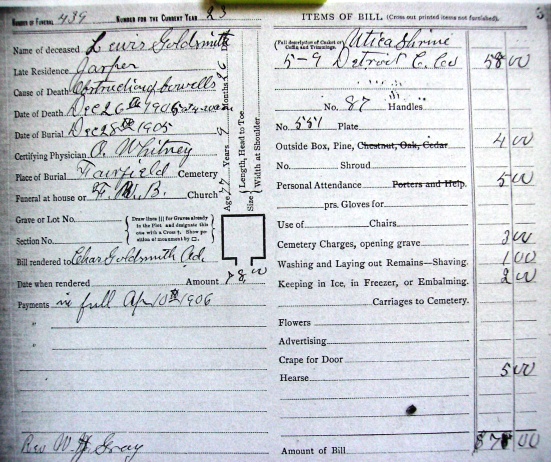 NUMBER OF FUNERAL 439 NUMBER FOR THE CURRENT YEAR 23
Name of deceased Lewis Goldsmith
Late Residence Jasper
Cause of Death Obstruction of bowells
Date of Death Dec 26th 1905
Date of Burial Dec 28th 1905
Certifying Physician O. Whitney
Place of Burial Fairfield Cemetery
Funeral at house or F. W. B. Church
Age 77 Years 9 Months 26
Size { Length, Head to Toe
Width at Shoulder
Grave or Lot No.
Section No.
{ Draw lines ||| for Graves already in the Plot and designate this one with a Cross †. Show position of monument by □. }
Bill rendered to Chas Goldsmith Ad.
Date when rendered Amount 78.00
Payments in full Apr 10th 1906
"
"
Rev W. H. Gray
ITEMS OF BILL (Cross out printed items not furnished). 3
(Full description of Casket or Coffin and Trimmings. Utica Shrine
5-9 Detroit C. Co 58 00
No. 87 Handles
No. 551 Plate
Outside Box, Pine, Chestnut, Oak, Cedar 4 00
No. Shroud
Personal Attendance Porters and Help. 5 00
prs. Gloves for
Use of Chairs.
Cemetery Charges, opening grave 3 00
Washing and Laying out Remains—Shaving. 1 00
Keeping in Ice, in Freezer, or Embalming. 2 00
Carriages to Cemetery.
Flowers
Advertising
Crape for Door
Hearse 5 00
Amount of Bill $78 00